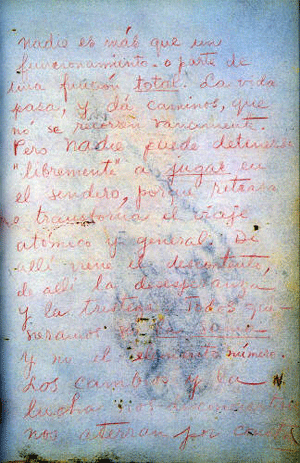 nadie es más que un
funcionamiento. o parte de
una función total. La vida
pasa, y dá caminos, que
no se recorren vanamente.
Pero nadie puede detenerse
"libremente" a jugar en
el sendero, porque retrasa
o transtorna el viaje
atómico y general. De
allí viene el descontento,
de allí la desesperanza
y la tristeza. Todos qui-
sieramos la suma
y no el elemento número.
Los cambios y la
lucha nos
nos aterran por